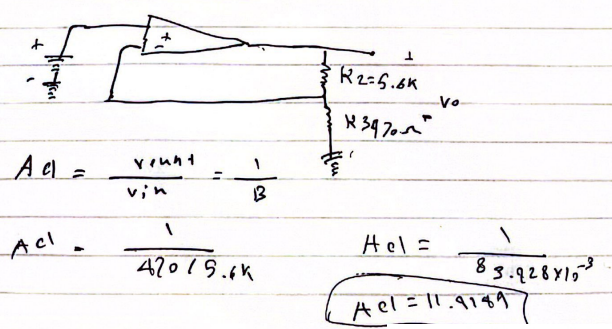 +
-
+
-
R2=5.6K
Vo
R3 470Ω
Acl = / vin = 1/B
Acl = 1/470/5.6K
Acl = 1/83.928x10^-3
Acl = 11.9149